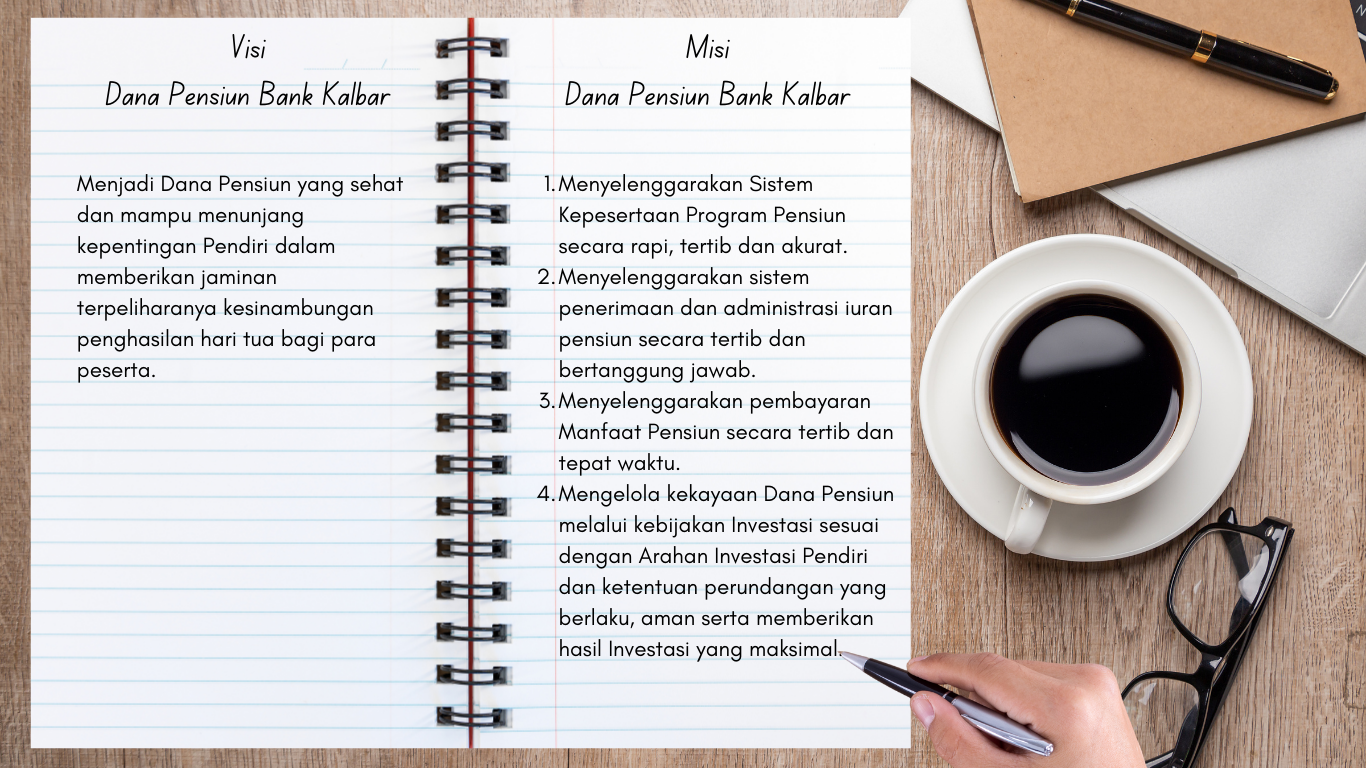 Visi
Dana Pensiun Bank Kalbar
Menjadi Dana Pensiun yang sehat
dan mampu menunjang
kepentingan Pendiri dalam
memberikan jaminan
terpeliharanya kesinambungan
penghasilan hari tua bagi para
peserta.
Misi
Dana Pensiun Bank Kalbar
1. Menyelenggarakan Sistem
Kepesertaan Program Pensiun
secara rapi, tertib dan akurat.
2. Menyelenggarakan sistem
penerimaan dan administrasi iuran
pensiun secara tertib dan
bertanggung jawab.
3. Menyelenggarakan pembayaran
Manfaat Pensiun secara tertib dan
tepat waktu.
4. Mengelola kekayaan Dana Pensiun
melalui kebijakan Investasi sesuai
dengan Arahan Investasi Pendiri
dan ketentuan perundangan yang
berlaku, aman serta memberikan
hasil Investasi yang maksimal.